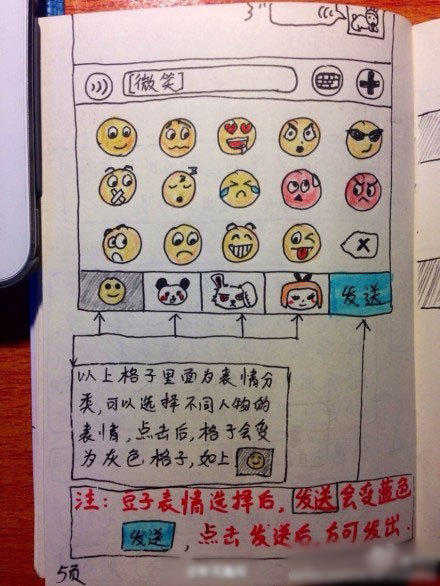 [微笑]
发送
以上格子里面为表情分
类,可以选择不同人物的
表情,点击后,格子会变
为灰色格子,如上
注:豆子表情选择后,发送会变蓝色
发送,点击发送后,方可发出.
5页